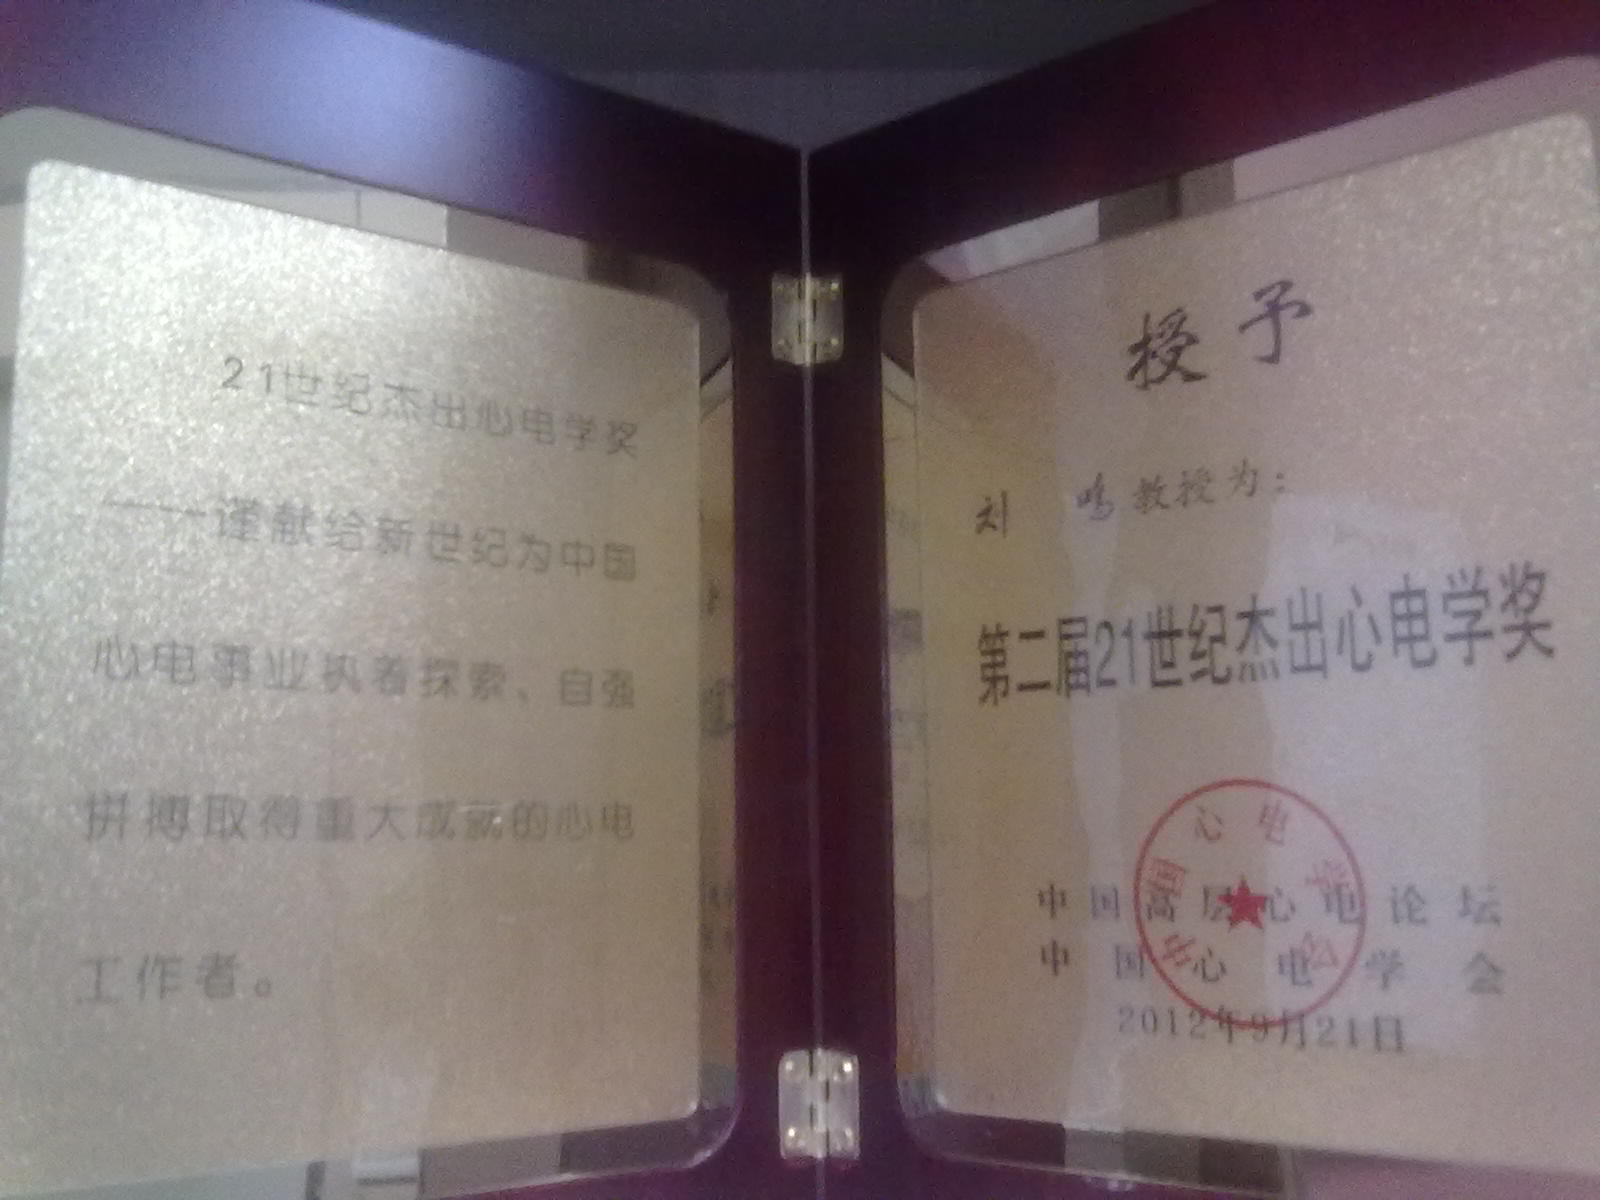 21世纪杰出心电学奖
——谨献给新世纪为中国
心电事业执着探索、自强
拼搏取得重大成就的心电
工作者。
授予
刘 鸣教授为：
第二届21世纪杰出心电学奖
中国高层心电论坛
中国心电学会
2012年9月21日
中国心电学会